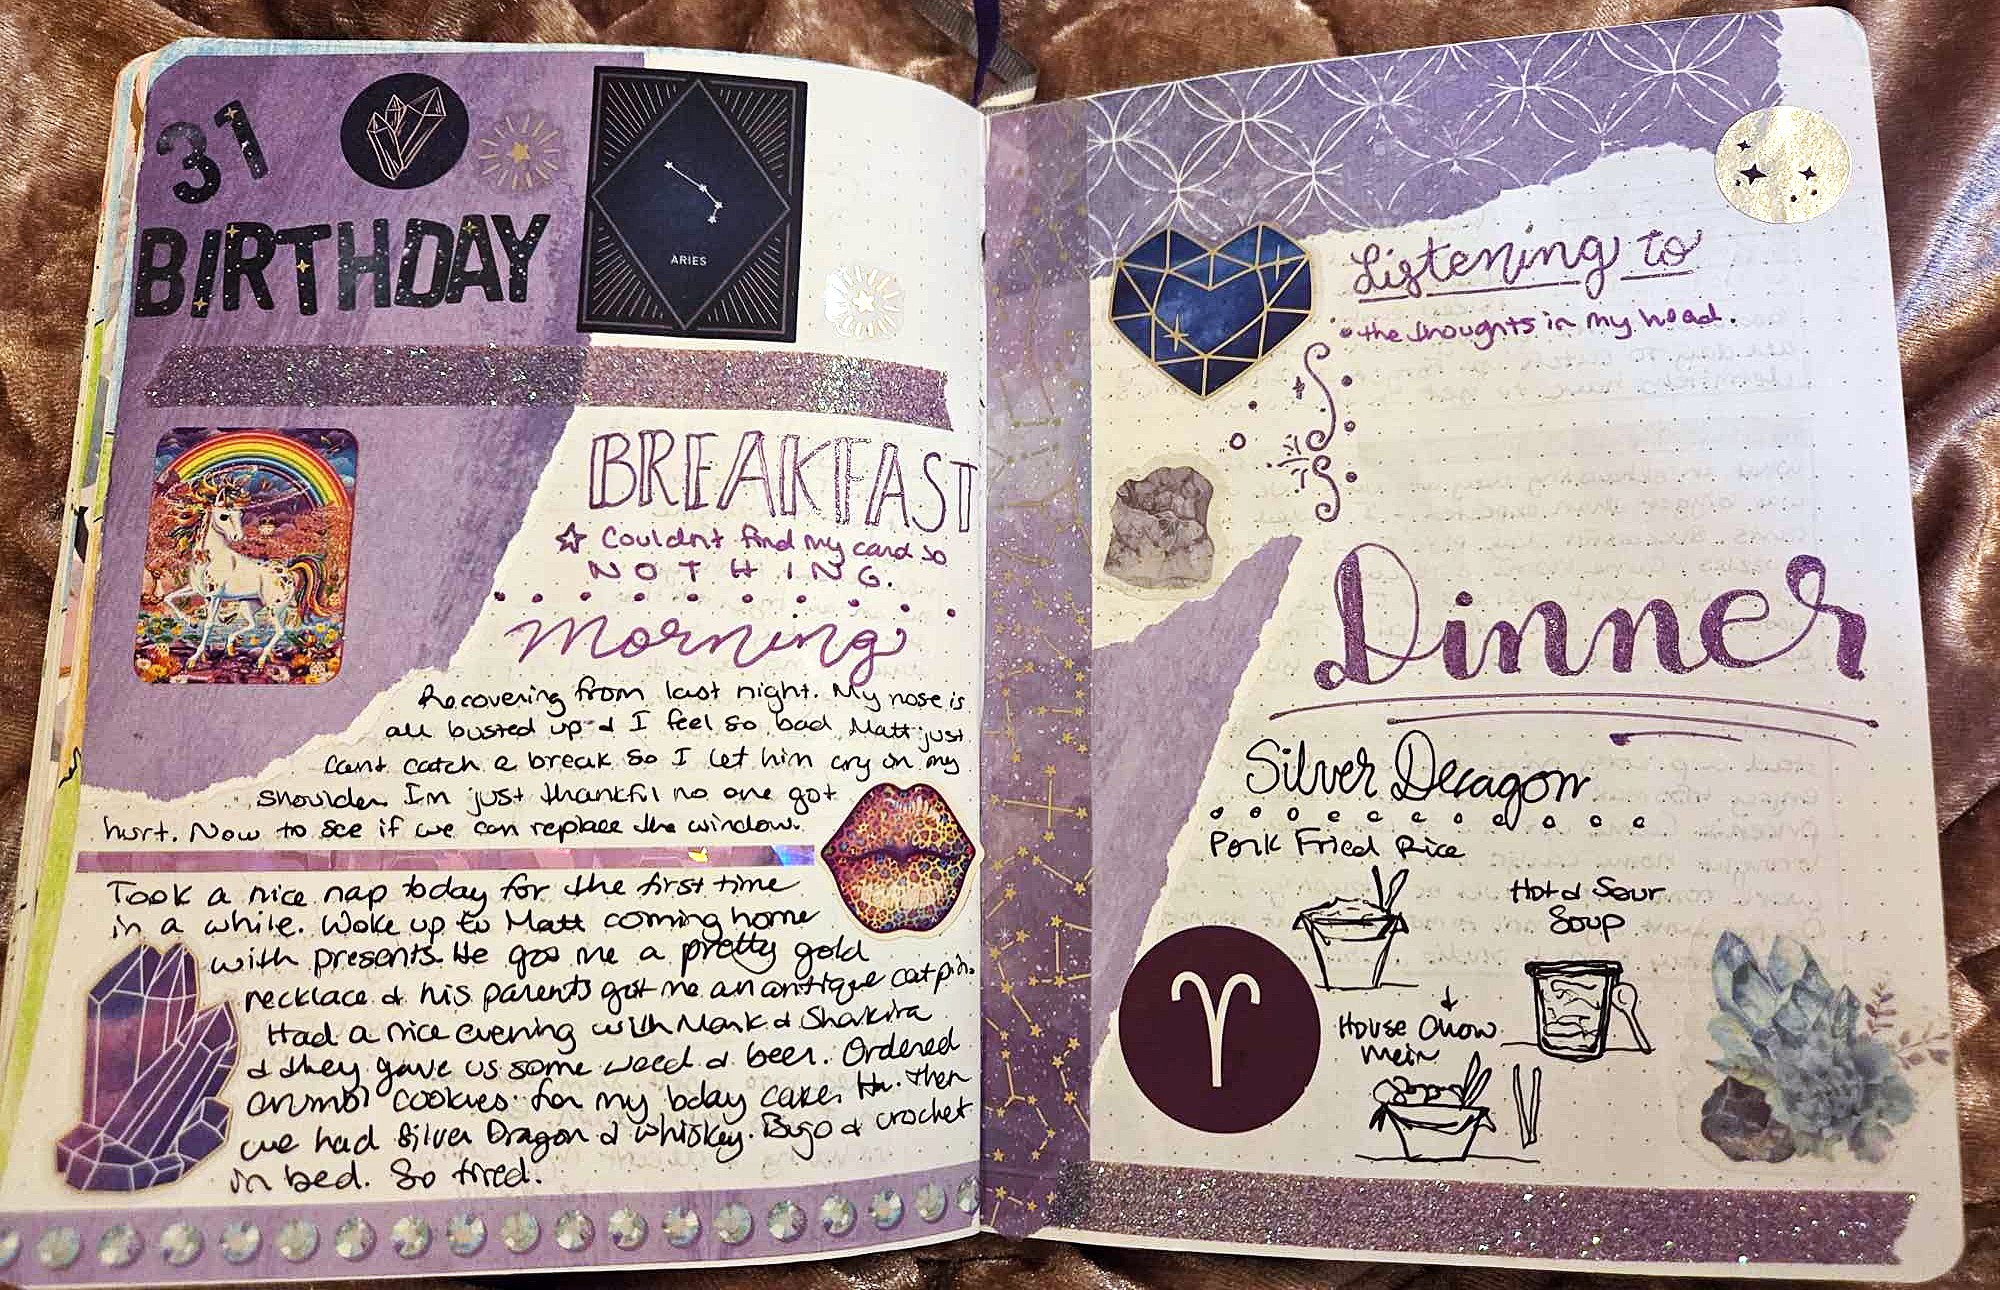 31
BIRTHDAY
ARIES
BREAKFAST
Couldn't find my card so
NOTHING.
Morning
Recovering from last night. My nose is
all busted up & I feel so bad Matt just
cant catch a break so I let him cry on my
shoulder. Im just thankful no one got
hurt. Now to see if we can replace the window.
Took a nice nap today for the first time
in a while. Woke up to Matt coming home
with presents. He got me a pretty gold
necklace & his parents got me an antique cat pin.
Had a nice evening with Mark & Shakira
& they gave us some weed & beer. Ordered
animal cookies for my bday cake. Then
we had Silver Dragon & whiskey. & crochet
in bed. So tired.
Listening to
the thoughts in my head.
Dinner
Silver Dragon
Pork Fried Rice
Hot & Sour
Soup
House Chow
Mein